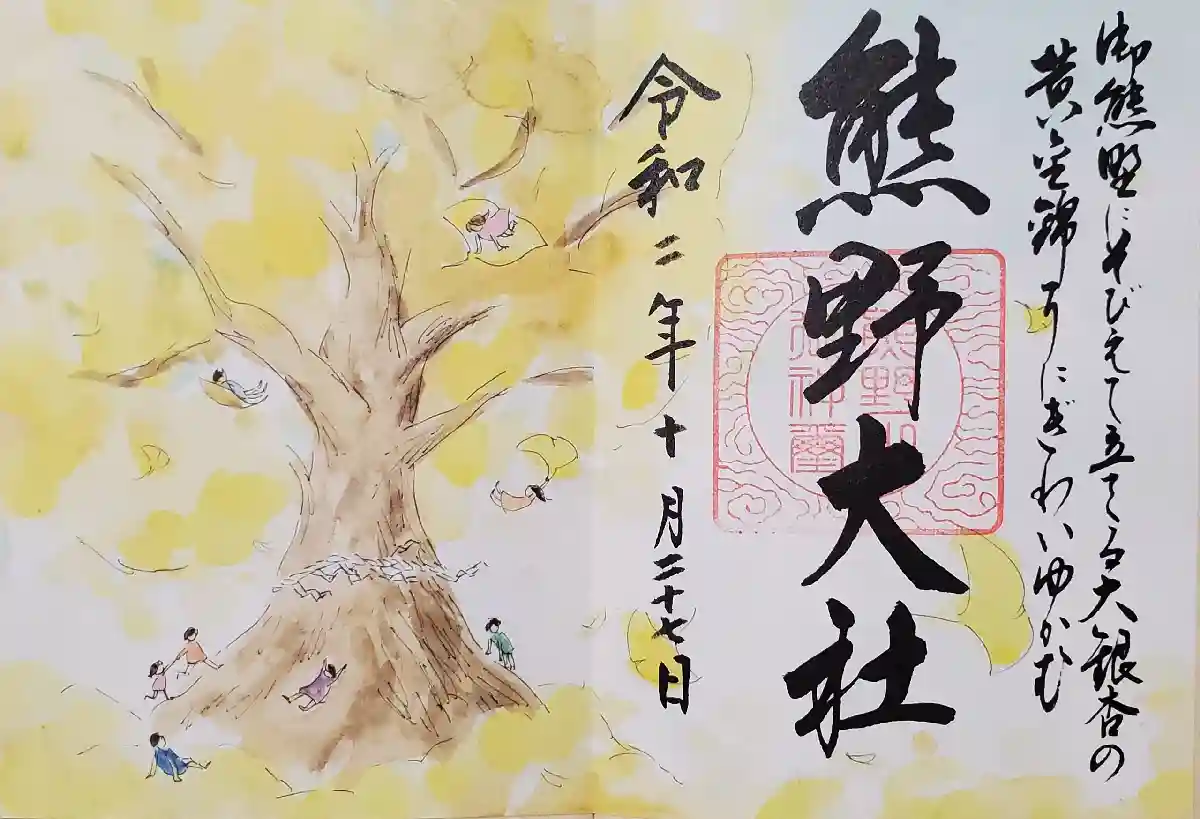 御熊野にそびえて立てる大銀杏の
黄金錦にぎわいゆかむ
熊野大社
熊野大
社神璽
令和二年十月二十七日